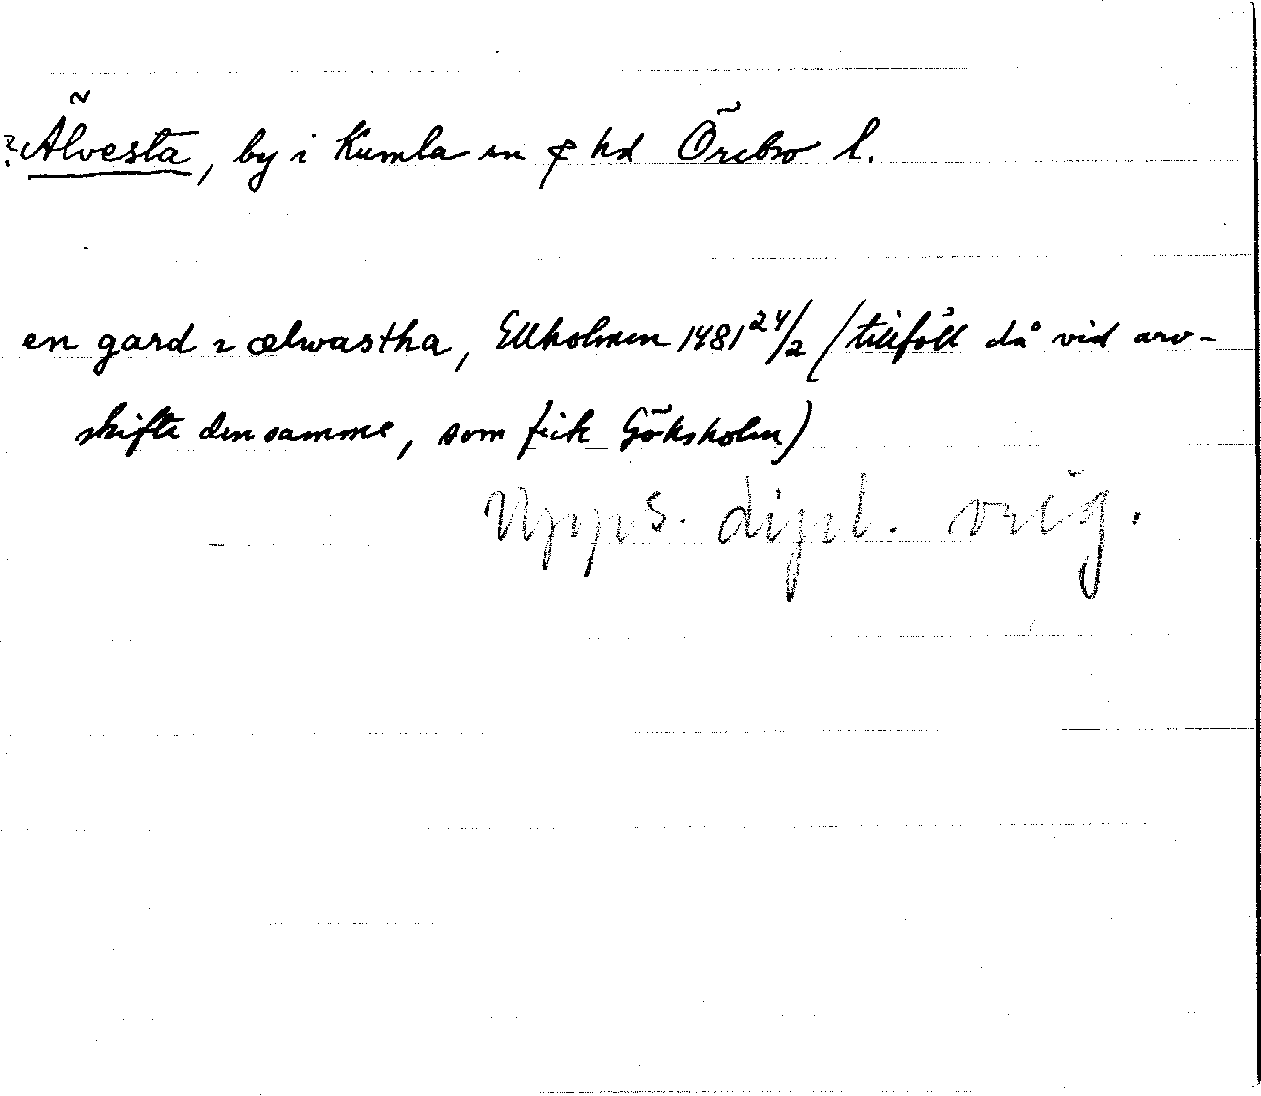 ? Älvesta, by i Kumla sn & hd Örebro l.
en gard i ælwastha, Ekholmen 1481 24/2 (tillföll då vid arv-
skifte densamme, som fick Göksholm)
Upps. dipl. orig.